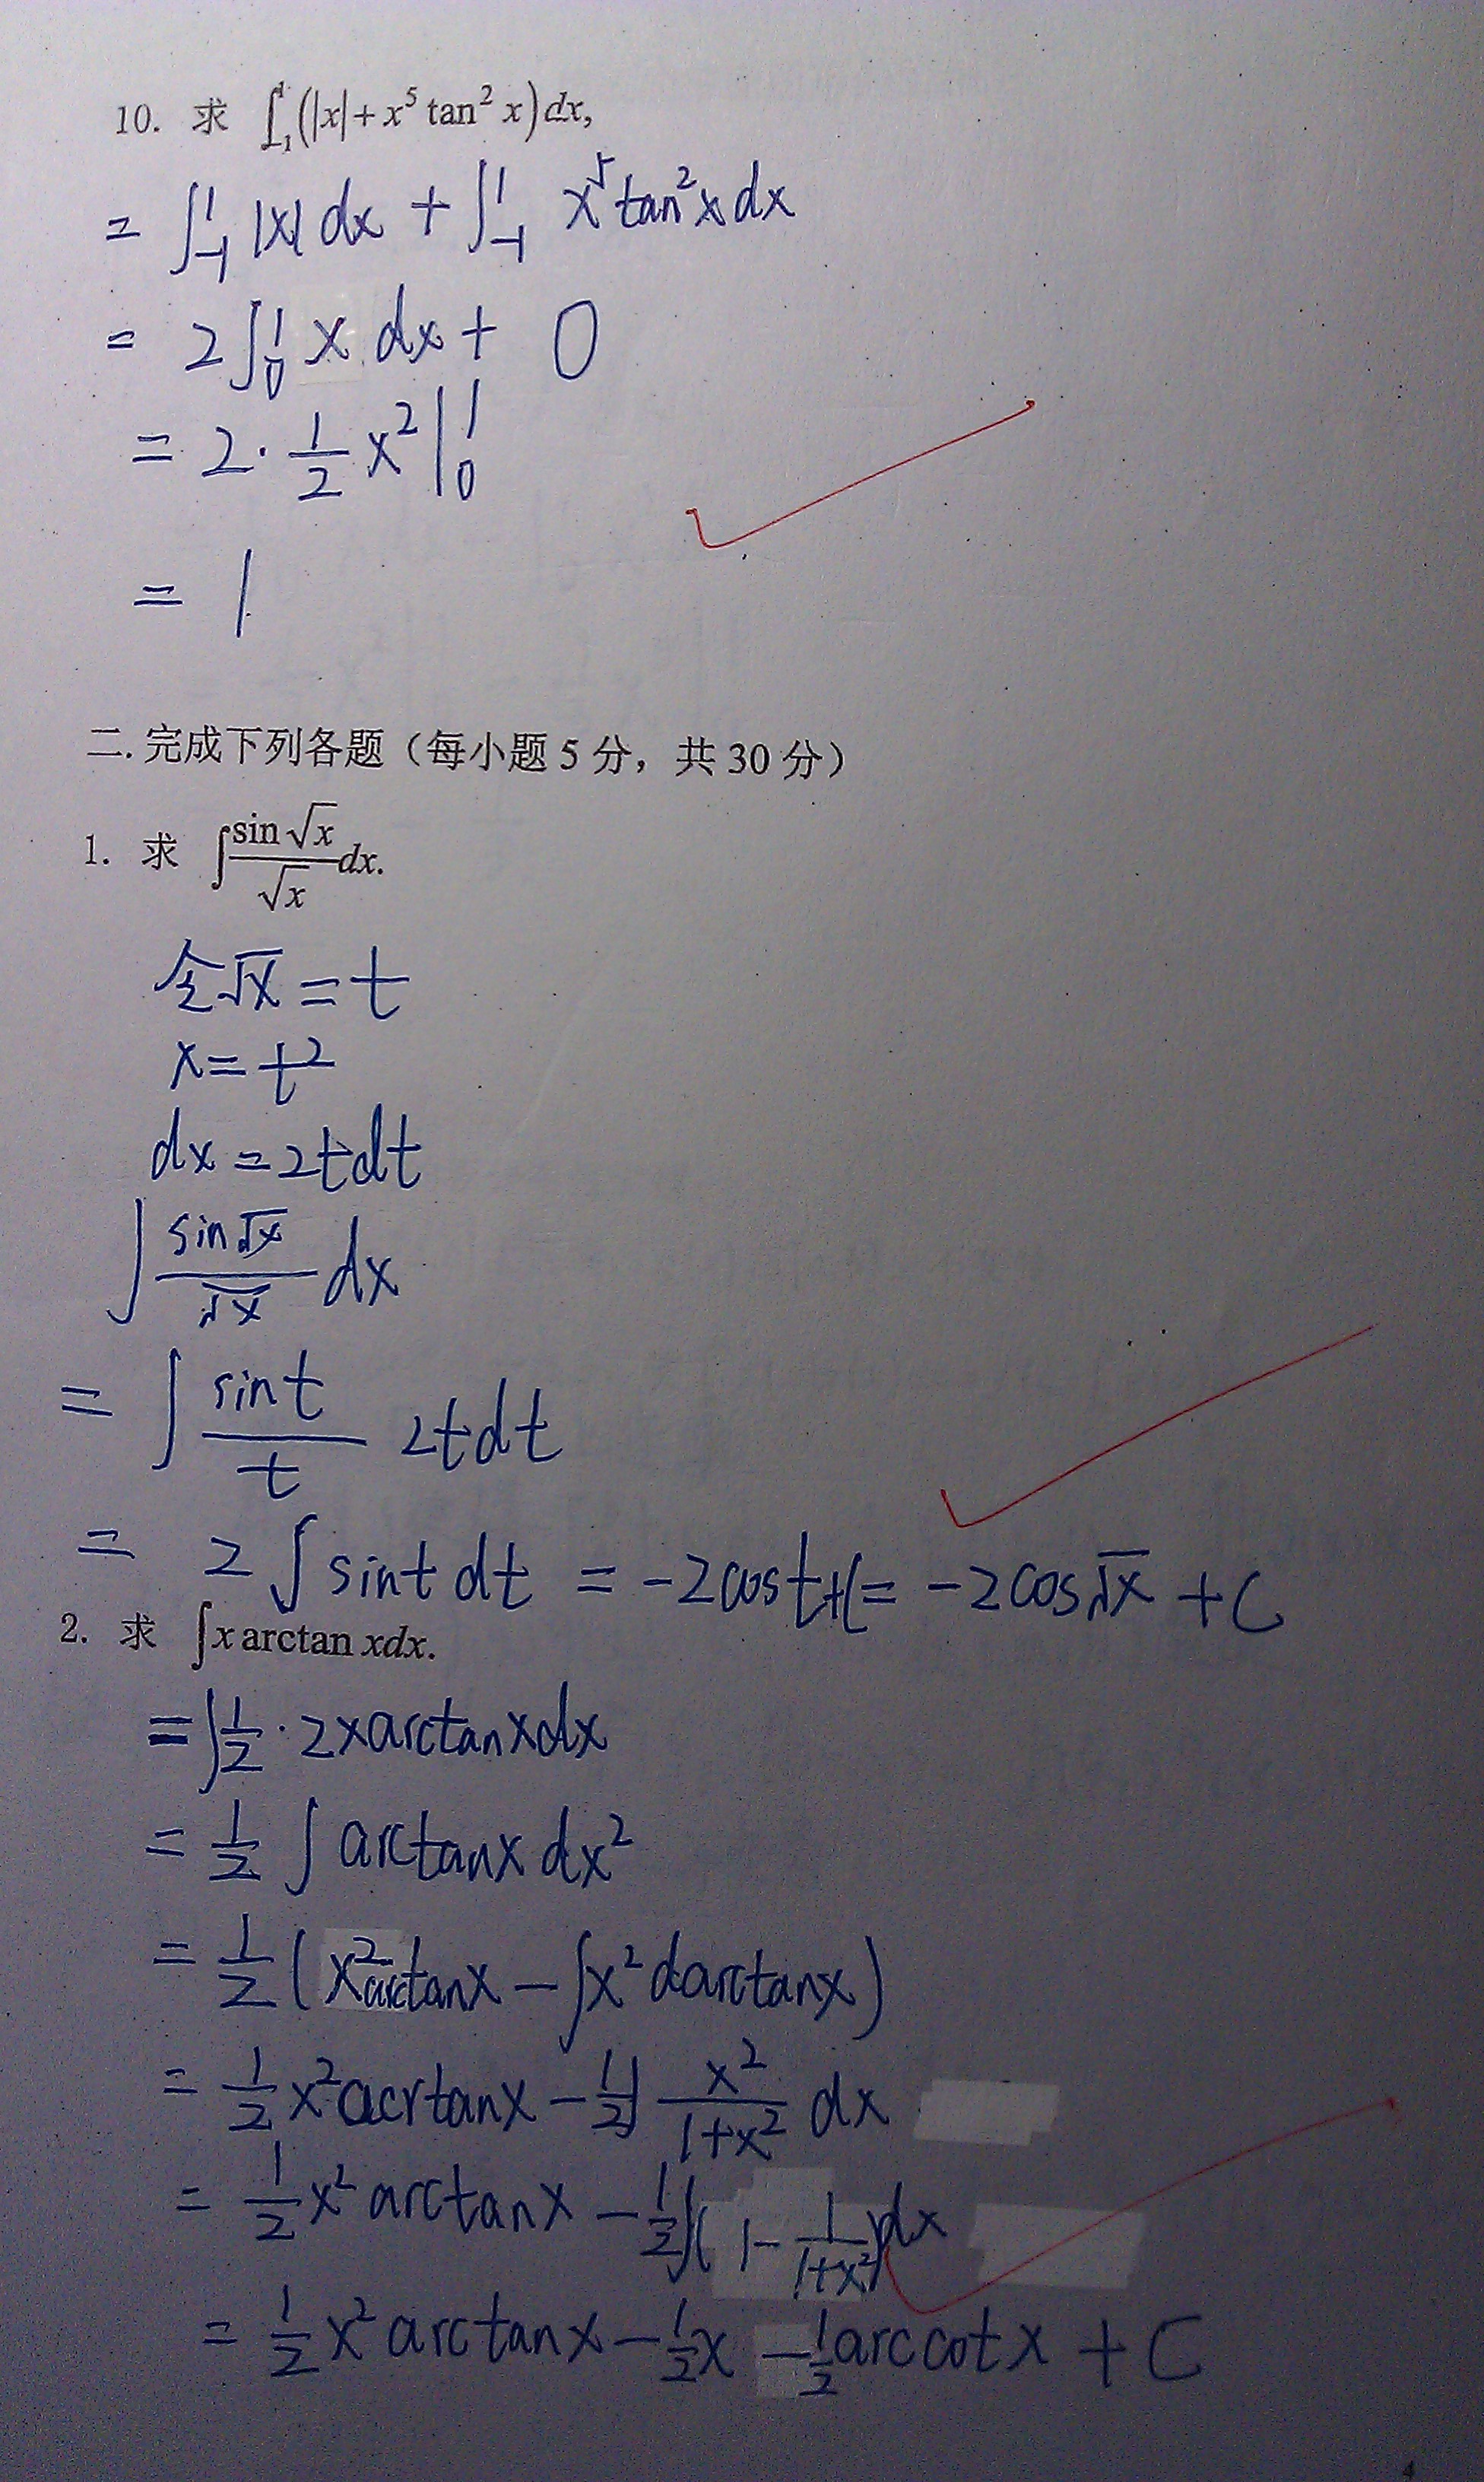 10. 求 ∫₋₁¹(|x|+x⁵tan²x)dx,
= ∫₋₁¹ |x| dx + ∫₋₁¹ x⁵tan²x dx
= 2∫₀¹ x dx + 0
= 2·1/2 x²|₀¹
= 1
二. 完成下列各题（每小题 5 分，共 30 分）
1. 求 ∫ sin√x/√x dx.
令√x = t
x = t²
dx = 2tdt
∫ sin√x/√x dx
= ∫ sint/t 2tdt
= 2∫sint dt = -2cost+C = -2cos√x + C
2. 求 ∫x arctan xdx.
= ∫1/2·2xarctanxdx
= 1/2 ∫ arctanx dx²
= 1/2 (x²arctanx - ∫x²darctanx)
= 1/2 x²acrtanx - 1/2∫ x²/(1+x²) dx
= 1/2 x² arctanx - 1/2∫(1 - 1/(1+x²))dx
= 1/2 x² arctanx - 1/2 x - 1/2 arccotx + C
4